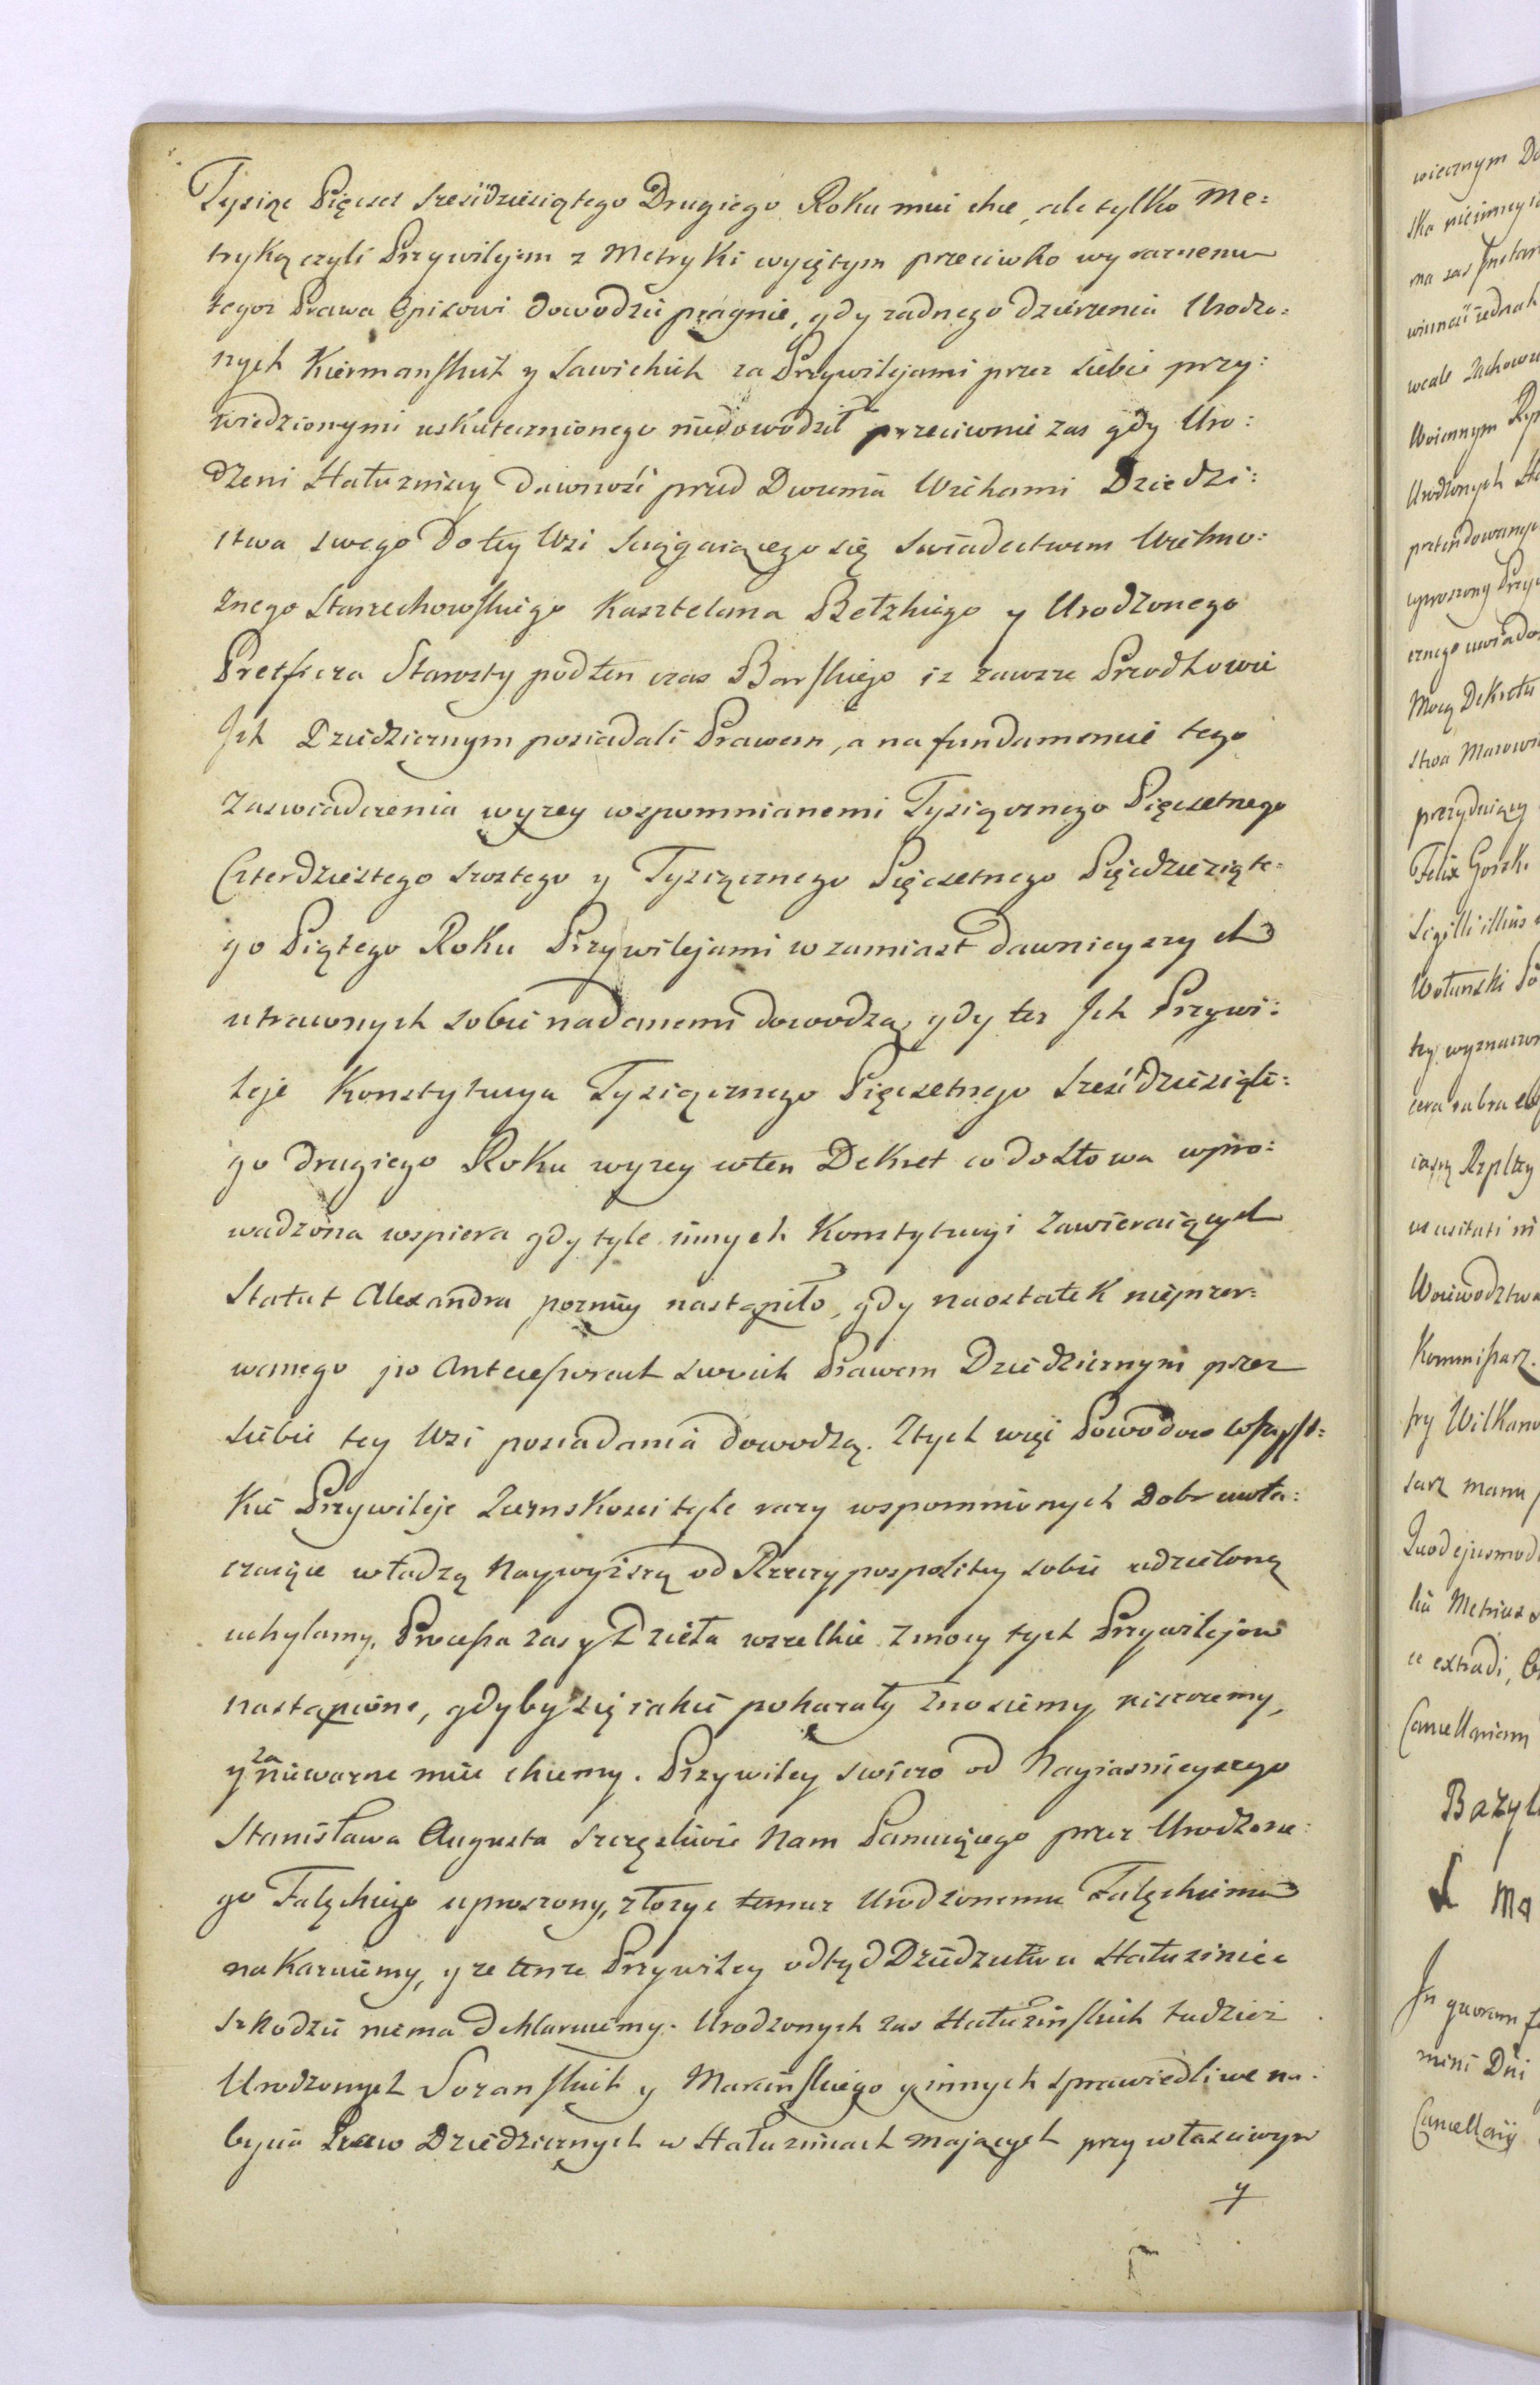 Tysiąc Pięcset Szesćdziesiątego Drugiego Roku mieć chce, ale tylko Me:
tryką czyli Przywilejem z Metryki wyciętym przeciwko wyraznemu
tegoz Prawa Opisowi dowodzić pragnie, gdy zadnego dzierzenia Urodzo:
nych Kiermanskich y Sawickich za Przywilejami przez siebie przy:
wiedzionymi uskutecznionego niedowodził przeciwnie zas gdy Uro:
dzeni Hałuzinscy dawność przed Dwoma Wiekami Dziedzi:
stwa swego do tey Wsi sciągaiącego się swiadectwem Wielmo:
znego Starzechowskiego Kasztelana Bełzkiego y Urodzonego
Pretficza Starosty podten czas Barskiego iz zawsze Przodkowie
Ich Dziedzicznym posiadali Prawem, a na fundamencie tego
zaswiadczenia wyzey wspomnianemi Tysiącznego Pięcsetnego
Czterdziestego Szostego y Tysiącznego Pięcsetnego Pięcdziesiąte:
go Piątego Roku Przywilejami w zamiast dawnieyszych
utraconych sobie nadanemi dowodzą, gdy tez Ich Przywi:
leje Konstytucya Tysiącznego Pięcsetnego Sześćdziesiąte:
go drugiego Roku wyzey wten Dekret co do słowa wpro:
wadzona wspiera gdy tyle innych Konstytucyi zawieraiących
Statut Alexandra pozniey nastąpiło, gdy naostatek nieprzer:
wanego po Antecessorach swoich Prawem Dziedzicznym przez
siebie tey Wsi posiadania dowodzą. Ztych więc Powodow wszyst:
kie Przywileje Lennskosci tyle razy wspomnionych Dobr uwła:
czaiące władzą Naywyższą od Rzeczypospolitey sobie udzieloną
uchylamy, Processa zas y Dzieła wszelkie z mocy tych Przywilejow
nastąpione, gdyby się iakie pokazały znosiemy niszczemy,
y za niewazne miec chcemy. Przywiley swiezo od Nayiasnieyszego
Stanisława Augusta szczęsliwie Nam Panuiącego przez Urodzone:
go Falęckiego uproszony, złozyc temuz Urodzonemu Falęckiemu
nakazuiemy, y ze tenze Przywiley odtąd Dziedzictwu Hałuziniec
szkodzić niema deklaruiemy. Urodzonych zas Hałuzinskich tudziez
Urodzonych Sozanskich y Marcinskiego y innych sprawiedliwe na:
bycia Praw Dziedzicznych w Hałuzincach mających przy własciwym
y